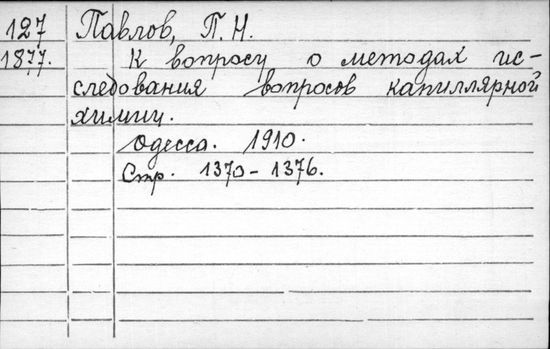 127 Павлов, П. Н.
1877. К вопросу о методах ис-
следования вопросов капиллярной
химии.
Одесса. 1910.
Стр. 1370-1376.